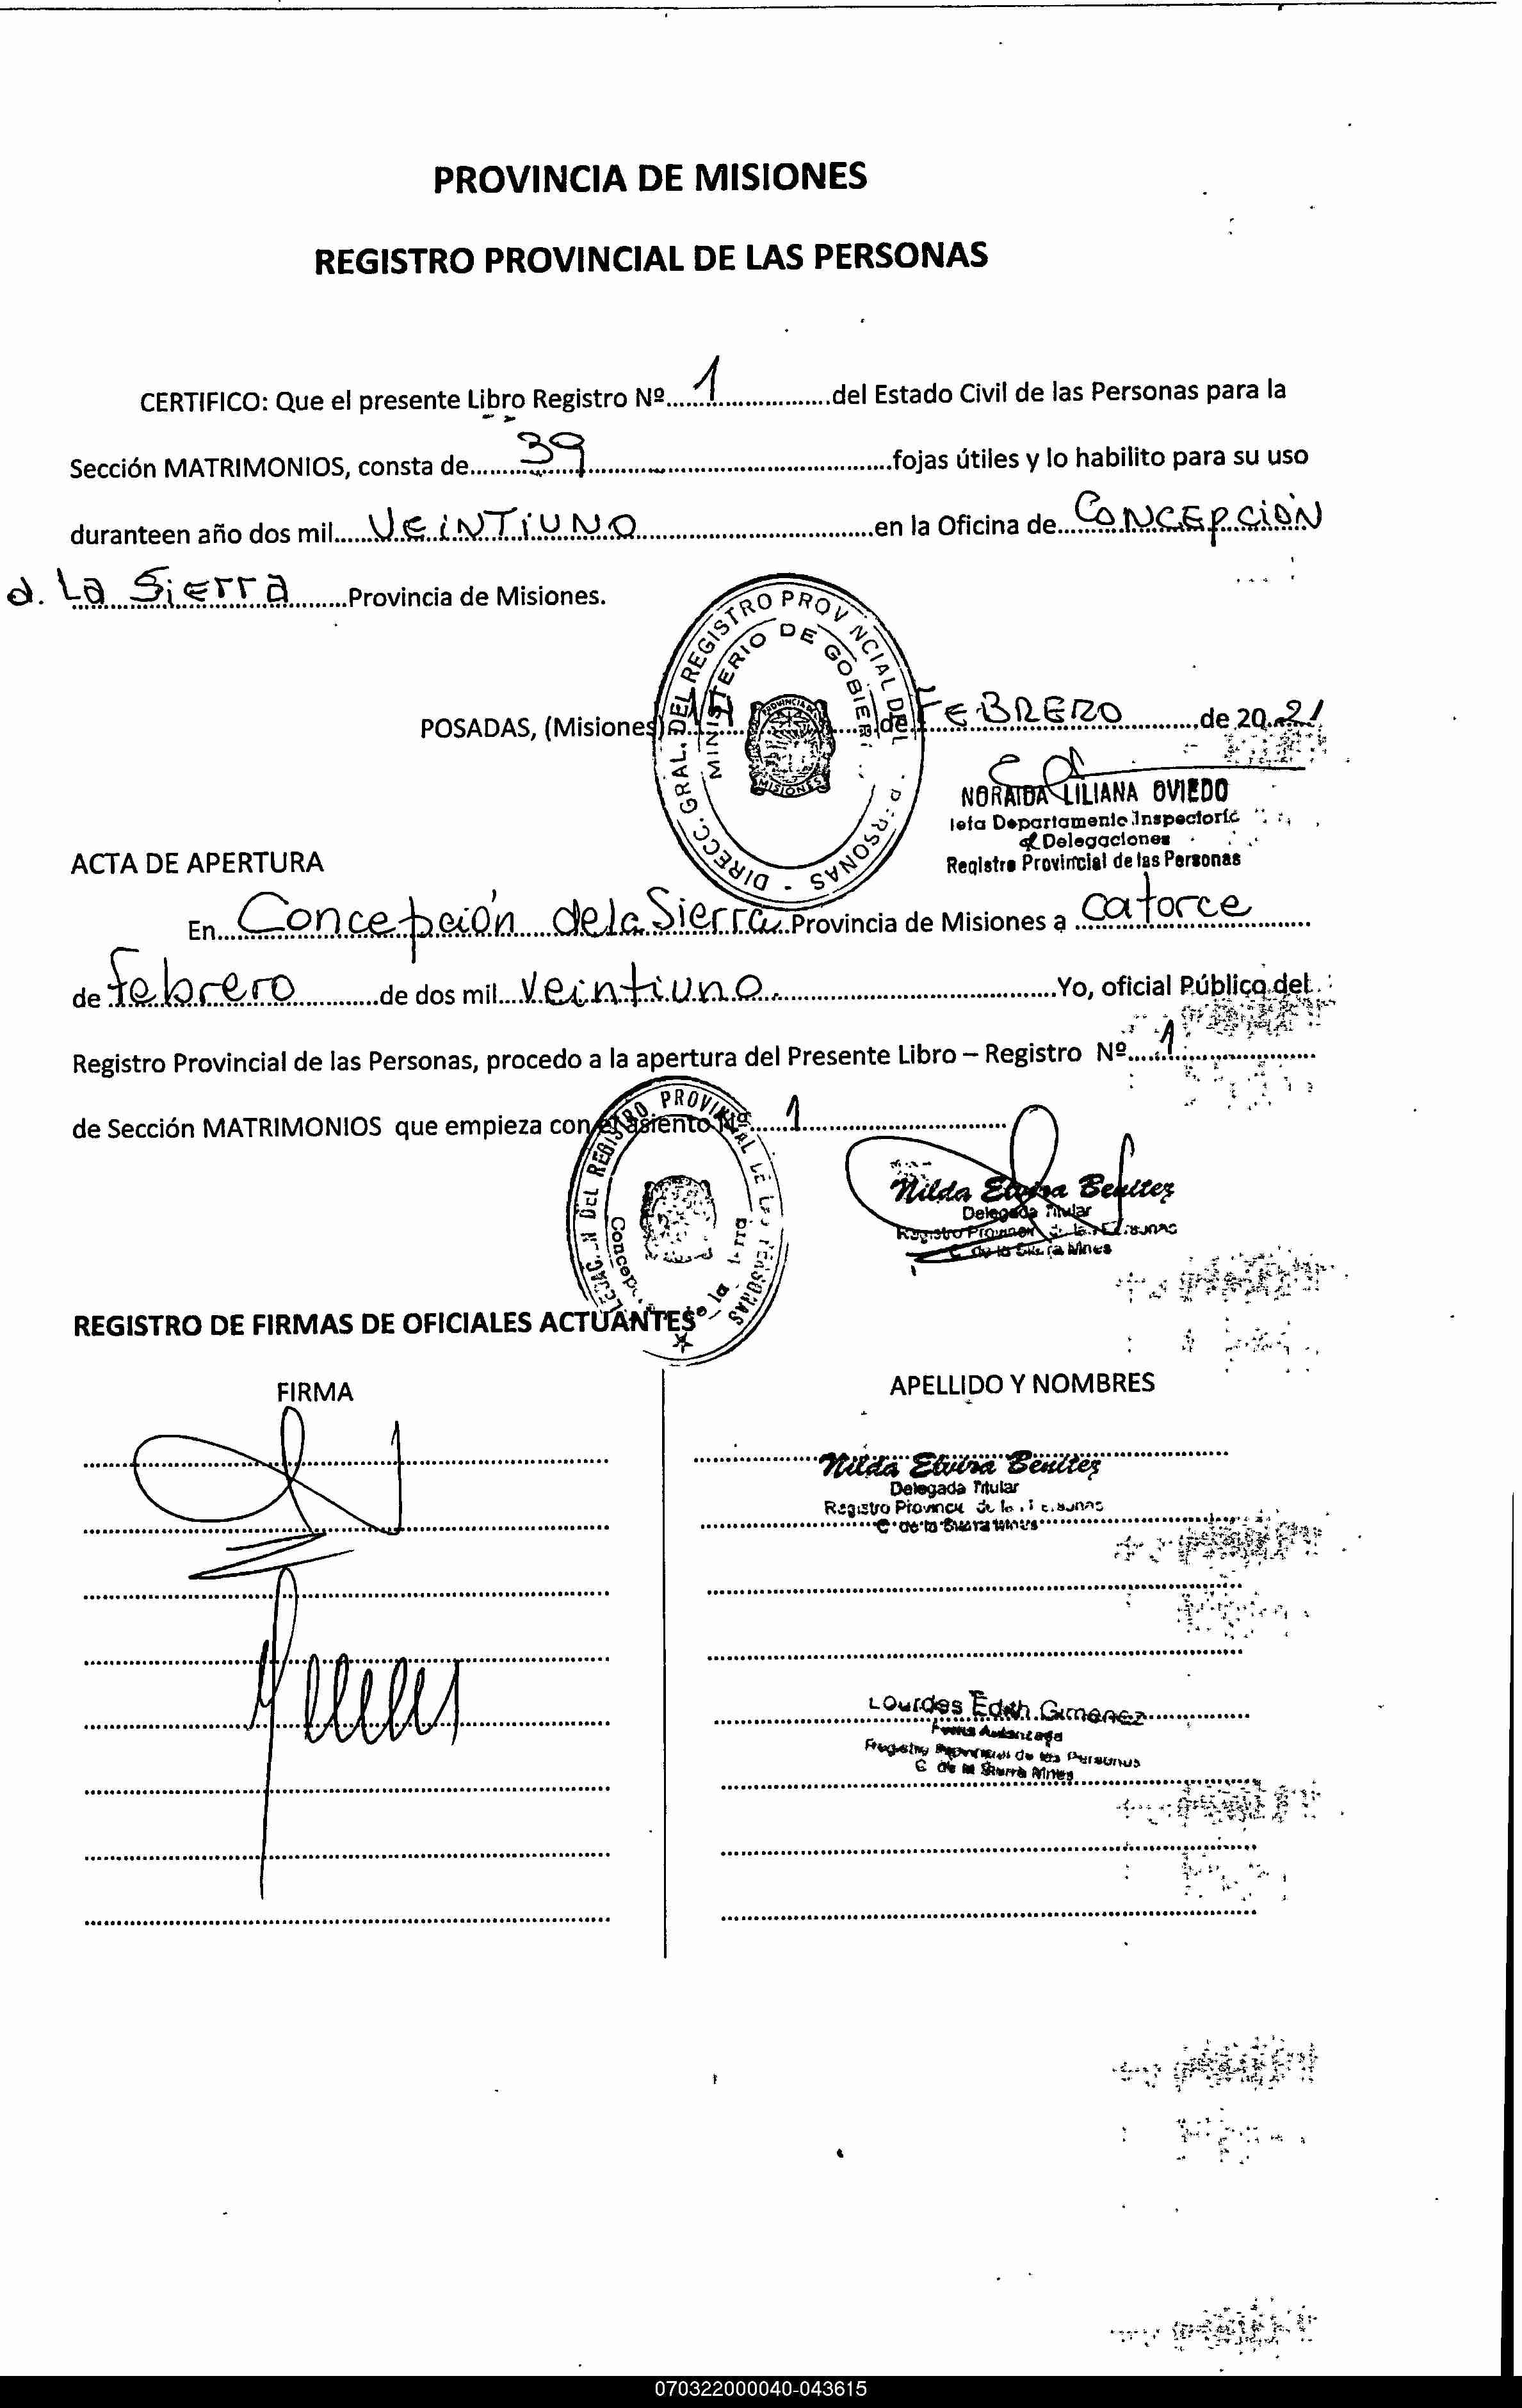 PROVINCIA DE MISIONES
REGISTRO PROVINCIAL DE LAS PERSONAS
CERTIFICO: Que el presente Libro Registro Nº.....1.....del Estado Civil de las Personas para la
Sección MATRIMONIOS, consta de.....39.....fojas útiles y lo habilito para su uso
duranteen año dos mil.....VEiNTiUNO.....en la Oficina de.....CONCEPCiÓN
d. La Sierra.....Provincia de Misiones.
DIRECC. GRAL. DEL REGISTRO PROVINCIAL DE PERSONAS -
MINISTERIO DE GOBIER
PROVINCIA
MISIONES
POSADAS, (Misiones).....de FEBRERO.....de 20.21
NORAIDA LILIANA OVIEDO
Jefa Departamento Inspectoría
Delegaciones
Registro Provincial de las Personas
ACTA DE APERTURA
En.....Concepción de la Sierra.Provincia de Misiones a catorce
de febrero.....de dos mil...veintiuno.....Yo, oficial Público del
Registro Provincial de las Personas, procedo a la apertura del Presente Libro – Registro Nº.....1.....
de Sección MATRIMONIOS que empieza con el asiento Nº.....1.....
DEL REGISTRO PROVINCIAL DE LAS PERSONAS
Nilda Elvira Benitez
Delegada Titular
Registro Provincial de las Personas
C de la Sierra Mnes
REGISTRO DE FIRMAS DE OFICIALES ACTUANTES
FIRMA
APELLIDO Y NOMBRES
Nilda Elvira Benitez
Delegada Titular
Registro Provincial de las Personas
C de la Sierra Mnes
Lourdes Edith Gimenez
Firma Autorizada
Registro Provincial de las Personas
C de la Sierra Mnes
070322000040-043615